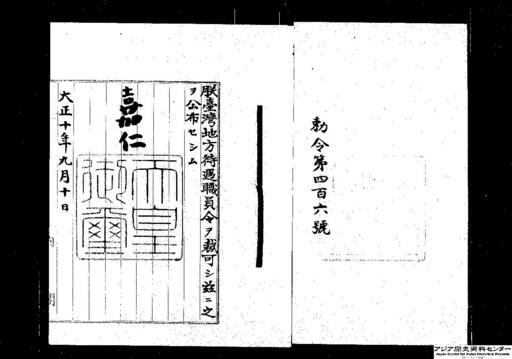 勅令第四百六號
朕臺灣地方待遇職員令ヲ裁可シ茲ニ之
ヲ公布セシム
嘉仁
天皇御璽
大正十年九月十日
内閣
アジア歴史資料センター
Japan Center for Asian Historical Records